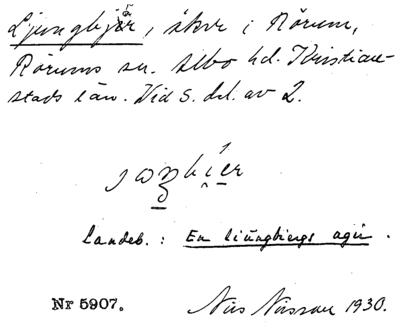 Ljungbjär, åker i Rörum,
Rörums sn. Albo hd. Kristian-
stads län. Vid S. del. av 2.
Landeb. : En liüngbiergs agir.
Nr 5907. Nils Nilsson 1930.